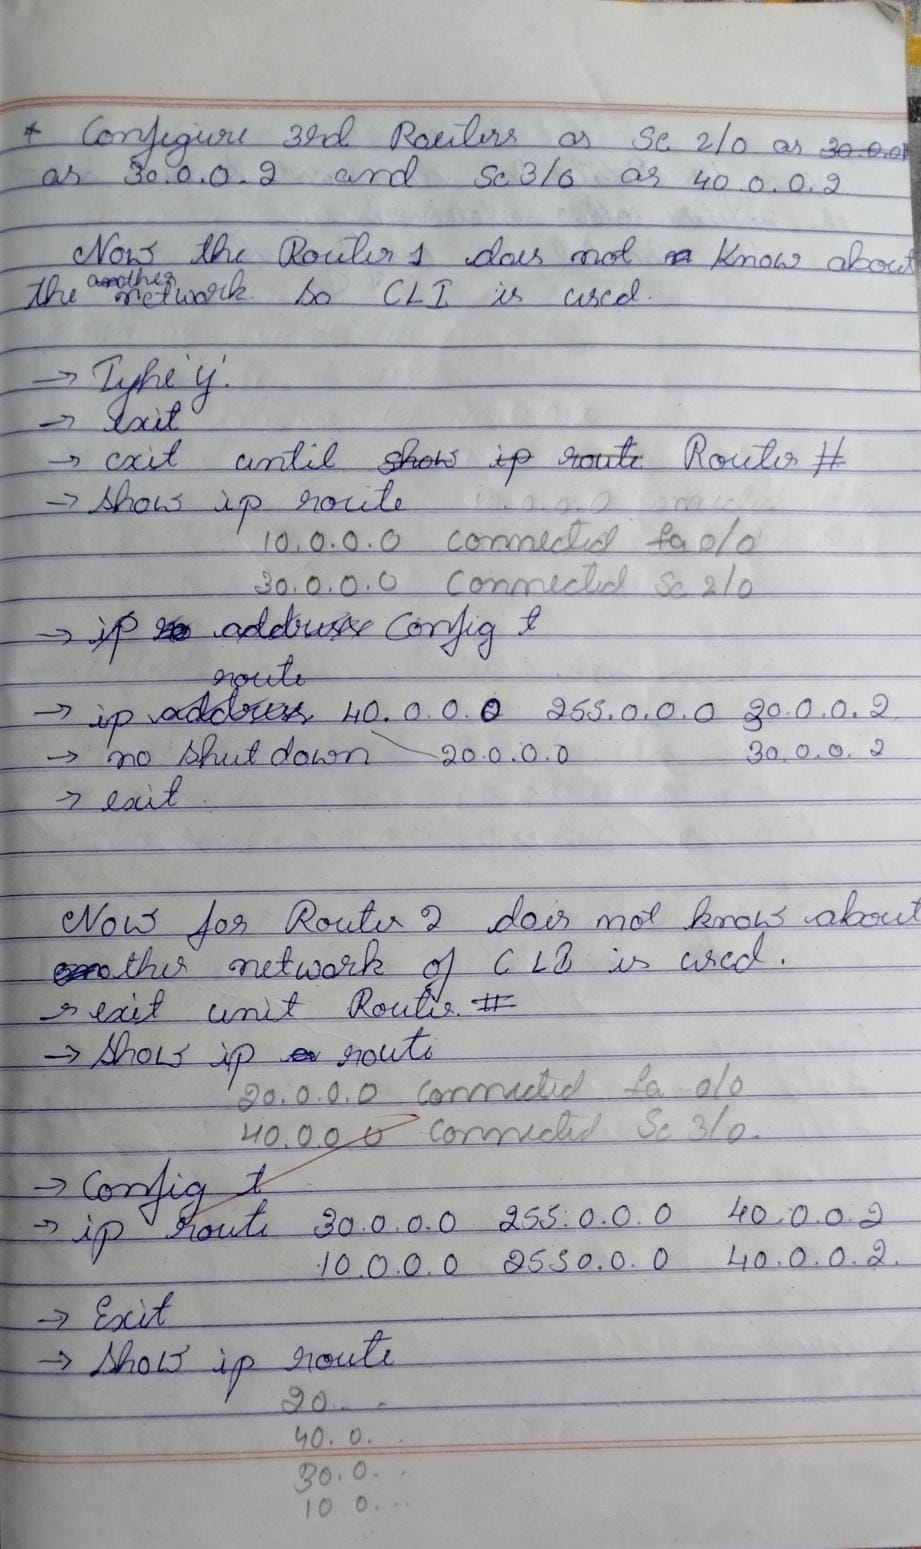 * Configure 3rd Routers as Se 2/0 as 30.0.0
as 30.0.0.2 and Se 3/0 as 40.0.0.2
Now the Router 1 does not know about
the another network so CLI is used.
→ Type 'y'.
→ exit
→ exit until show ip route Router #
→ show ip route
10.0.0.0 connected fa 0/0
30.0.0.0 connected Se 2/0
→ ip address Config t
route
→ ip address 40.0.0.0 255.0.0.0 30.0.0.2
→ no shut down 20.0.0.0 30.0.0.2
→ exit
Now for Router 2 does not know about
other network of CLI is used.
→ exit unit Router #
→ show ip route
20.0.0.0 connected fa 0/0
40.0.0.0 connected Se 3/0.
→ Config t
→ ip route 30.0.0.0 255.0.0.0 40.0.0.2
10.0.0.0 2550.0.0 40.0.0.2.
→ Exit
→ show ip route
20. . .
40. 0. . .
30. 0. . .
10 0. . .